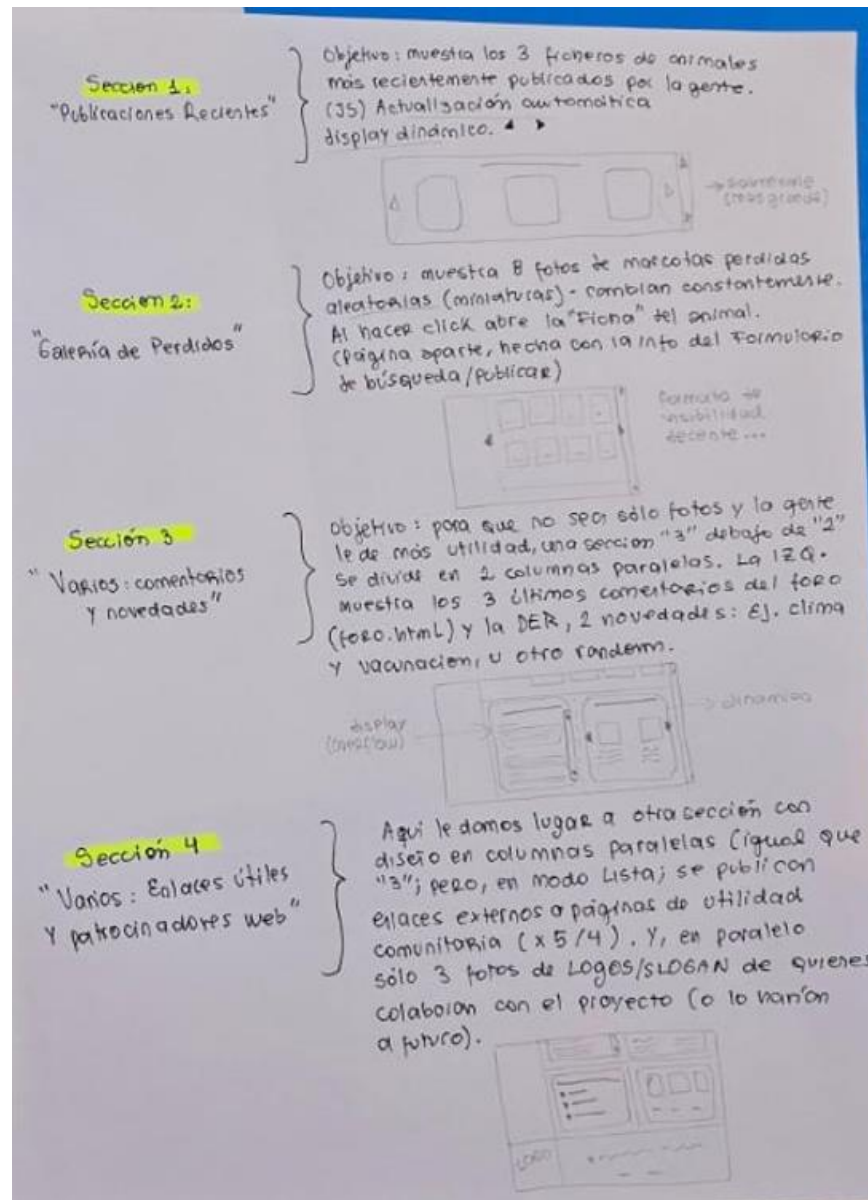 Sección 1:
"Publicaciones Recientes"
Objetivo: muestra los 3 ficheros de animales
más recientemente publicados por la gente.
(JS) Actualización automática
display dinámico.
→ sobresale
(más grande)
Sección 2:
"Galería de Perdidos"
Objetivo: muestra 8 fotos de mascotas perdidas
aleatorias (miniaturas) - cambian constantemente.
Al hacer click abre la "Ficha" del animal.
(Página aparte, hecha con la info del Formulario
de búsqueda/publicar)
Formato de
visibilidad
decente...
Sección 3
"Varios: comentarios
y novedades"
Objetivo: para que no sea sólo fotos y la gente
le de más utilidad, una sección "3" debajo de "2"
se divide en 2 columnas paralelas. La IZQ.
muestra los 3 últimos comentarios del foro
(foro.html) y la DER, 2 novedades: Ej. clima
y vacunación, u otro random.
display
(overflow)
→ dinámico
Sección 4
"Varios: Enlaces útiles
y patrocinadores web"
Aquí le damos lugar a otra sección con
diseño en columnas paralelas (igual que
"3"; pero, en modo Lista; se publican
enlaces externos a páginas de utilidad
comunitaria (x 5/4). Y, en paralelo
sólo 3 fotos de LOGOS/SLOGAN de quienes
colaboran con el proyecto (o lo harían
a futuro).
LOGO